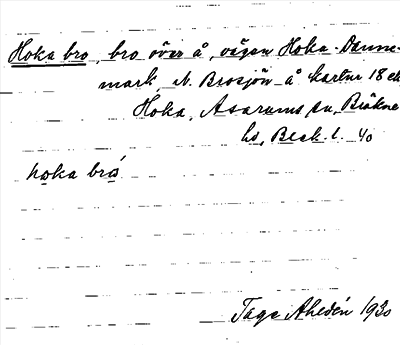 Hoka bro, bro över å, vägen Hoka-Danne-
mark, N. Brosjön å kartan 18
Hoka, Asarums sn, Bräkne
hd, Blek. l. 40
hoka bro
Tage Ahldén 1930